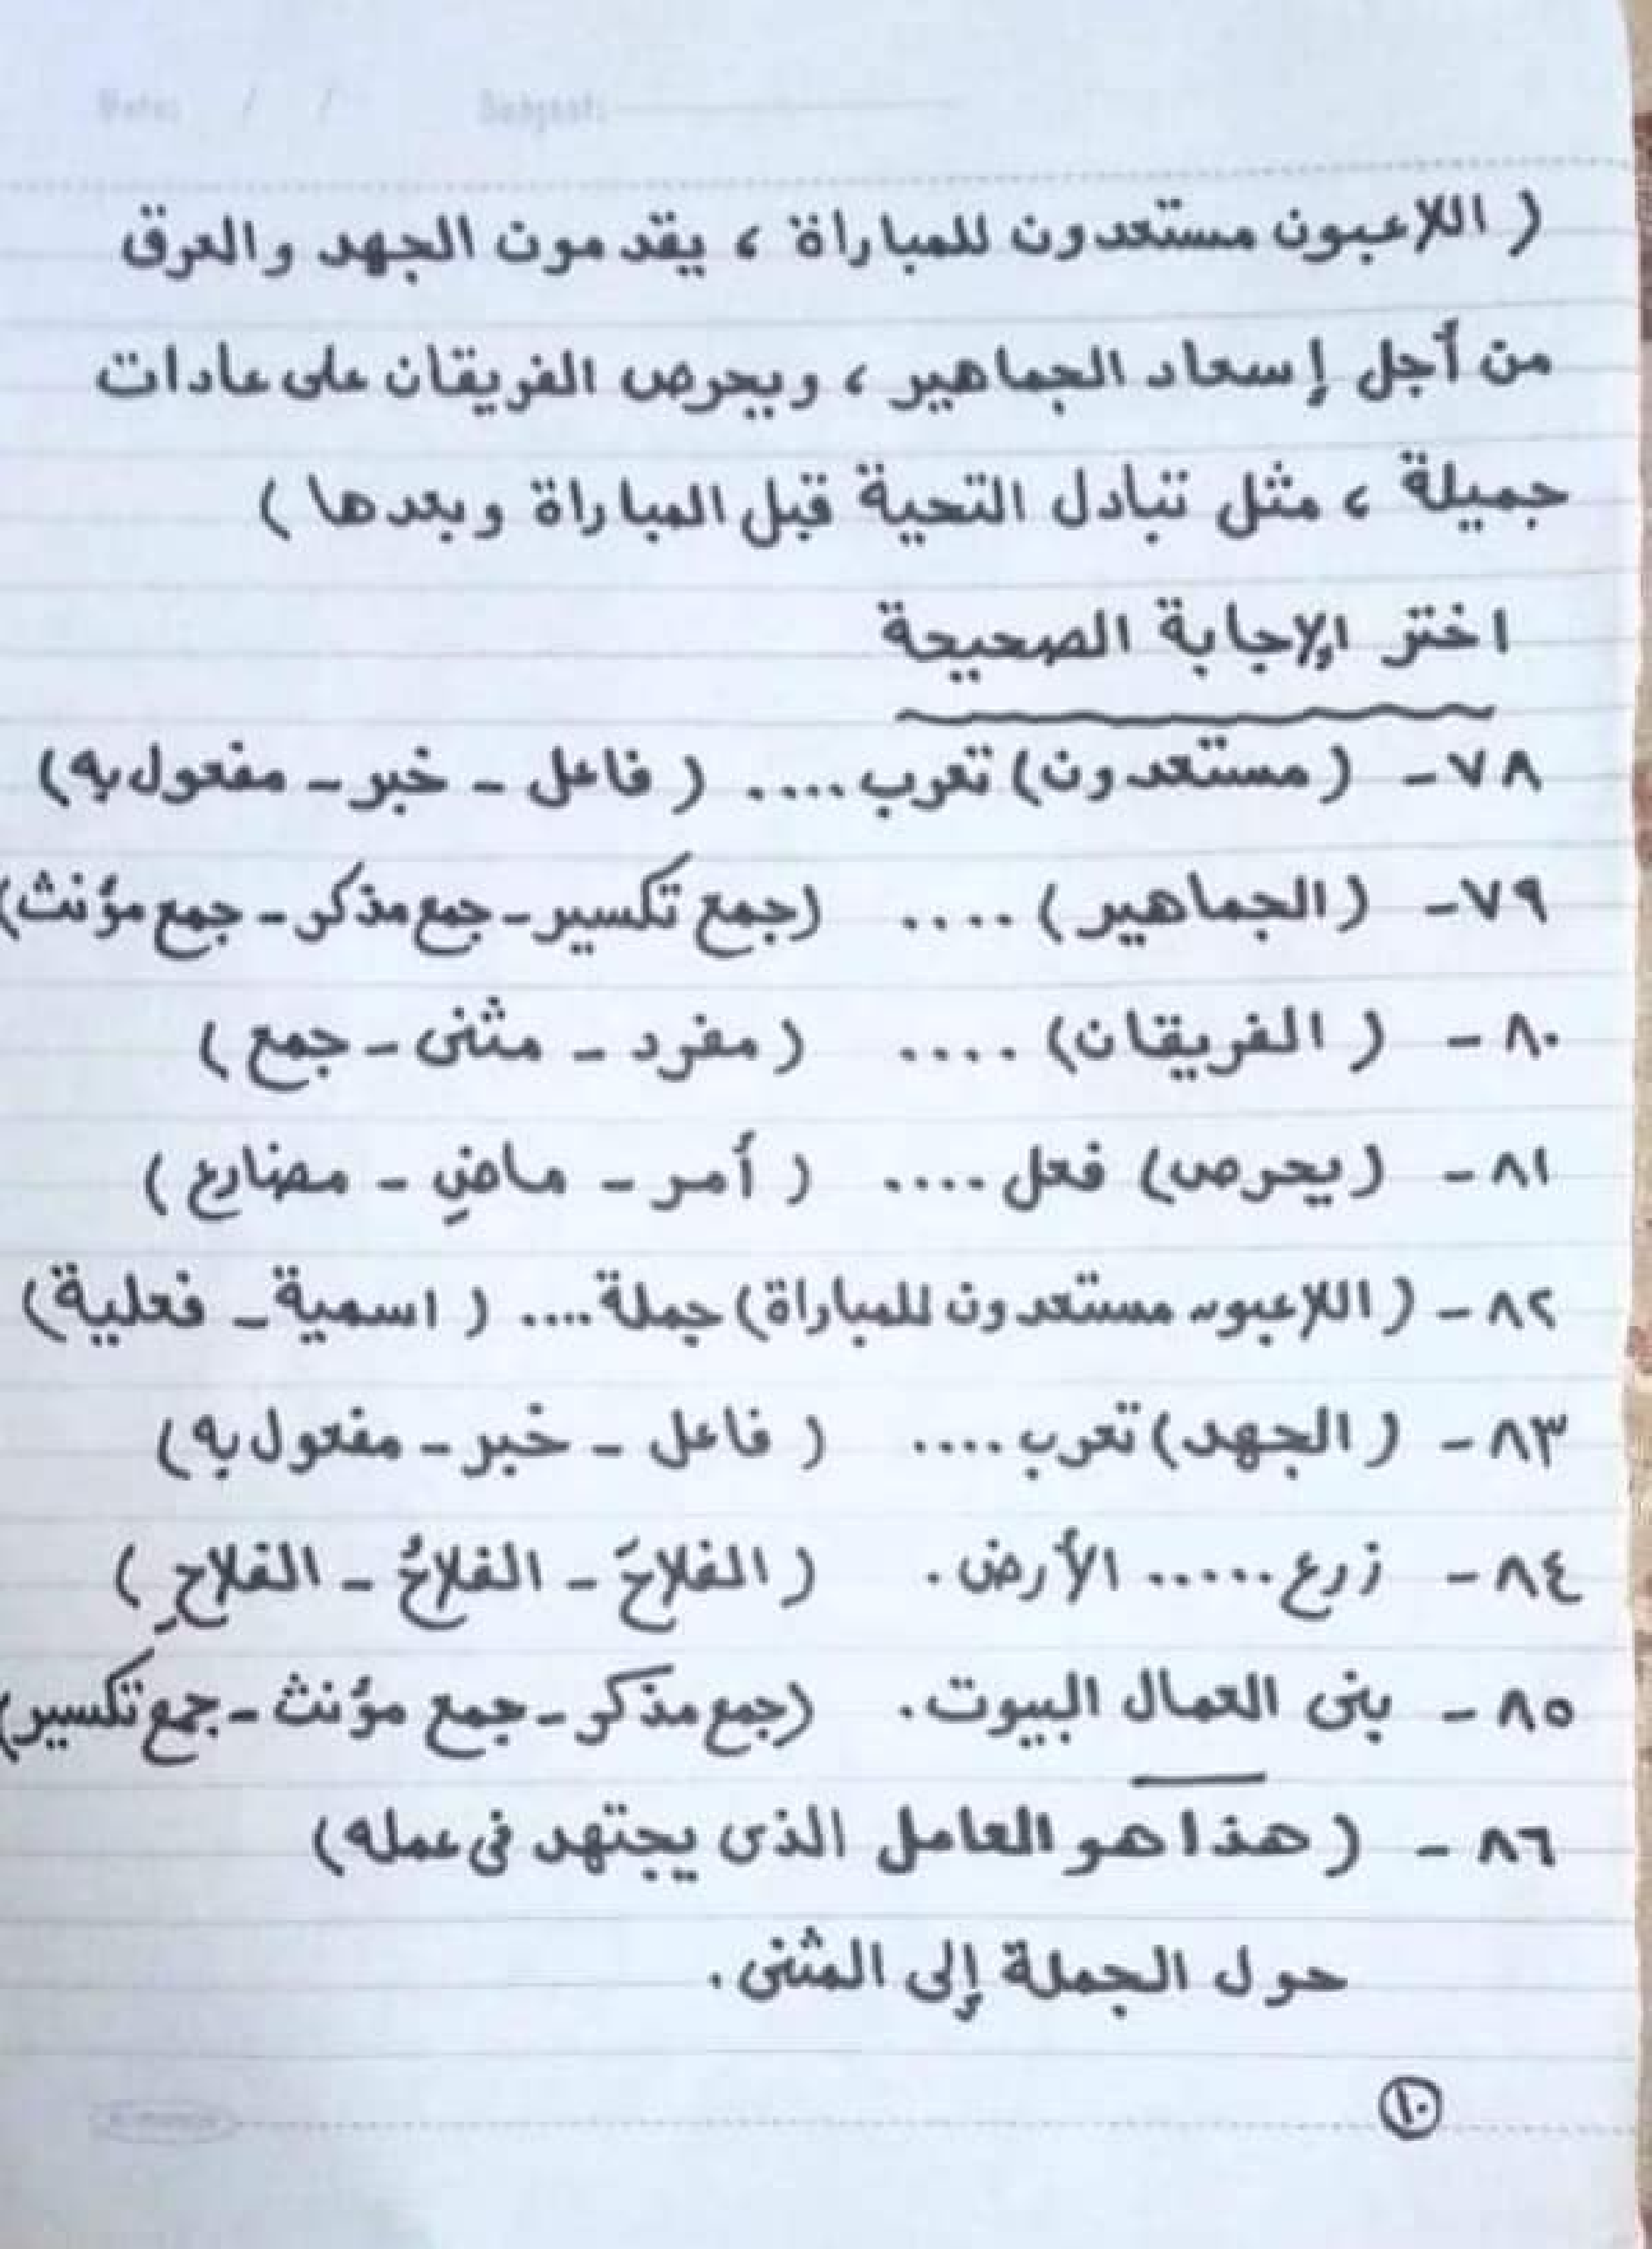 Date: / / Subject:
( اللاعبون مستعدون للمباراة ، يقدمون الجهد والعرق
من أجل إسعاد الجماهير ، ويحرص الفريقان على عادات
جميلة ، مثل تبادل التحية قبل المباراة وبعدها )
اختر الإجابة الصحيحة
٧٨- ( مستعدون) تعرب .... ( فاعل - خبر - مفعول به)
٧٩- ( الجماهير ) .... (جمع تكسير - جمع مذكر - جمع مؤنث)
٨٠- ( الفريقان) .... ( مفرد - مثنى - جمع )
٨١- ( يحرص) فعل .... ( أمر - ماضٍ - مضارع )
٨٢- ( اللاعبون مستعدون للمباراة) جملة .... ( اسمية - فعلية)
٨٣- ( الجهد) تعرب .... ( فاعل - خبر - مفعول به)
٨٤- زرع ..... الأرض . ( الفلاحَ - الفلاحُ - الفلاحِ )
٨٥- بنى العمال البيوت . (جمع مذكر - جمع مؤنث - جمع تكسير)
٨٦- ( هذا هو العامل الذى يجتهد فى عمله)
حول الجملة إلى المثنى .
١٠